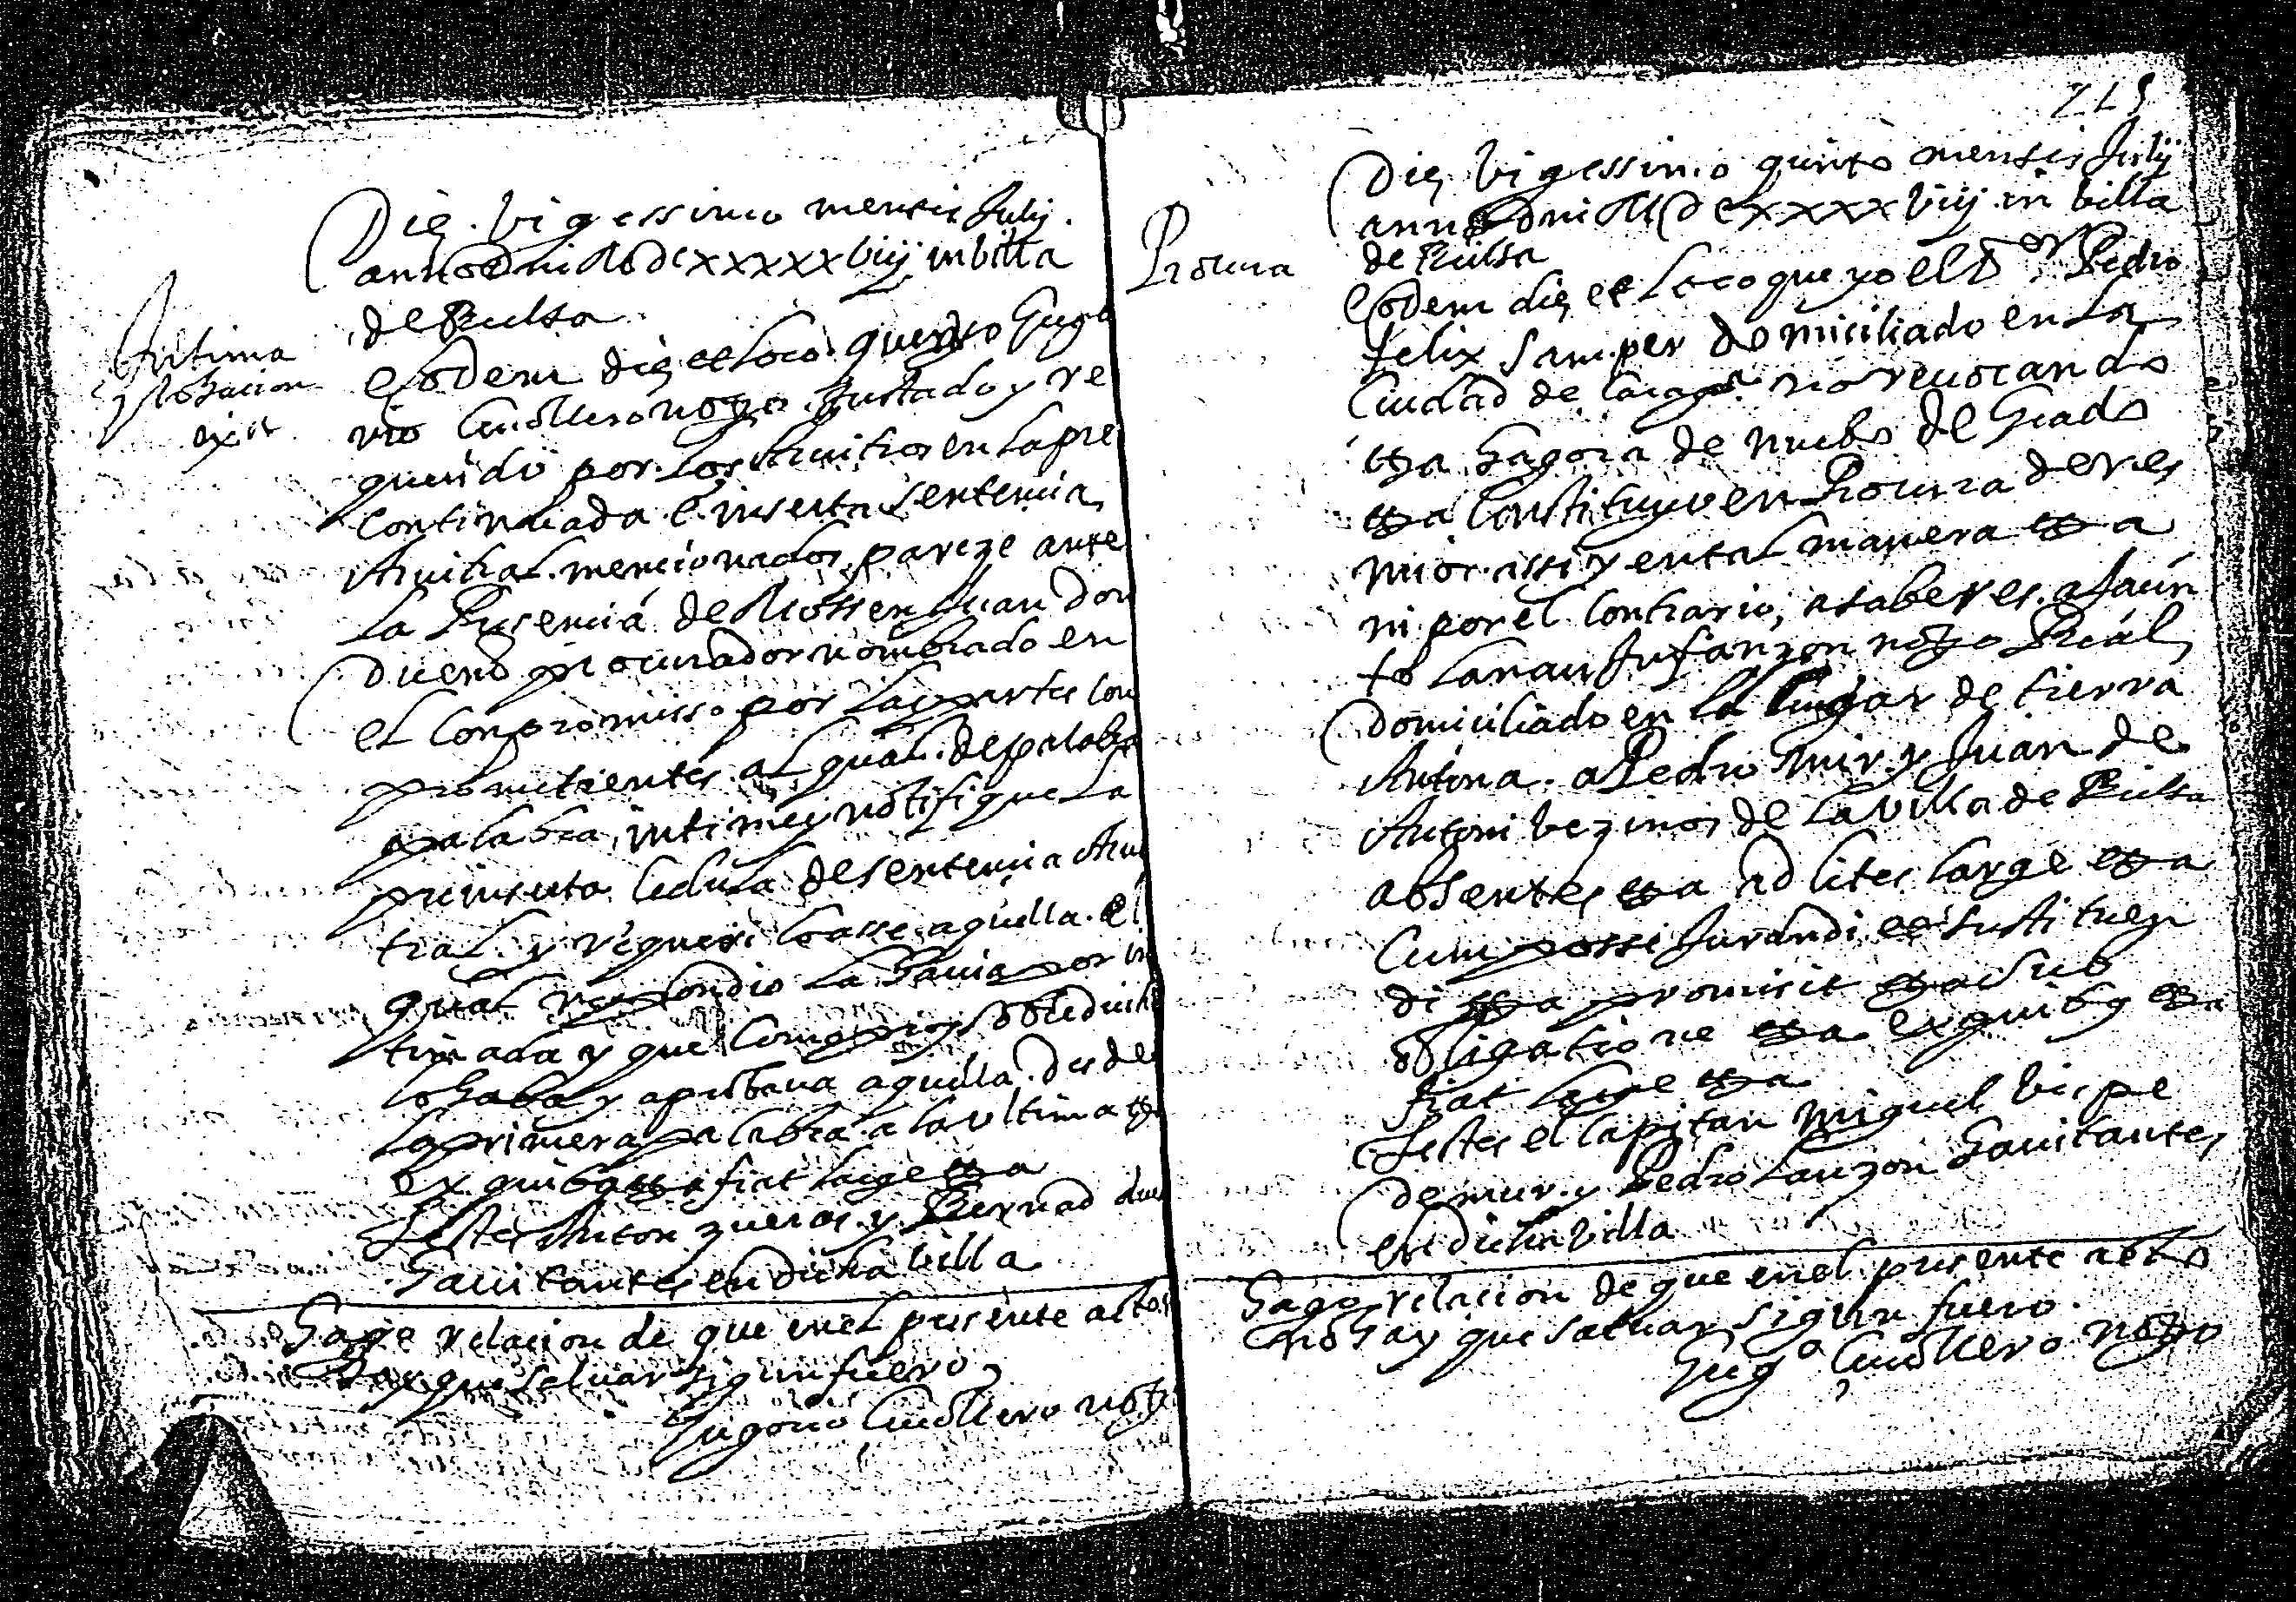 Die vigessimo mensis Julij
anno Dni MDCxxxxxviiij in villa
de Buelsa
Intima
Y lohacion
ext
Eodem die et loco que yo Hugo
rio Cuollero nott.o Instado y re
querido por los Arvitros en la pre
continuada e inserta sentencia
Arvitral mencionados pareze ante
la Presencia de Mossen Juan don
Duero procurador nombrado en
el compromisso por las partes com
prometientes al qual de palabra
palabra, intime y notifique la
preinserta cedula de sentencia Arui
tral y requeri loasse aquella. el
qual respondio la havia por in
timada y que como
lohaba y aprobava aquella desde
la primera palabra a la ultima etta
ex quibus etta fiat large etta
Testes Anton zueras y Bernad
Havitantes en dicha villa
Hago relacion de que en el presente acto
hay que salvar sigun fuero
Hugorio Cuollero nott
215
Die vigessimo quinto mensis Julij
anno Dni MDCxxxxviiij in villa
de Buelsa
Procura
Eodem die et loco que yo el Dor Pedro
felix Samper domiciliado en la
Ciudad de Caragça no revocando
etta hagora de nuebo de Grado
etta Constituyo en Procura dores
mios assi y en tal manera etta
ni por el contrario, a saber es a Jacin
to Lanau Infanzon notto Real
domiciliado en el lugar de tierra
Antona. a Pedro Mir y Juan de
Antoni vezinos de la villa de Buelsa
absentes etta ad lites large etta
Cum posse Jurandi et sustituen
di etta promisit etta sub
obligatione etta ex quibus etta
fiat large etta
Testes el Capitan Miguel Vispe
de mur y Pedro Lanzon Havitantes
en dicha villa
Hago relacion de que en el presente acto
no hay que salvar sigun fuero.
Hugo Cuollero notto